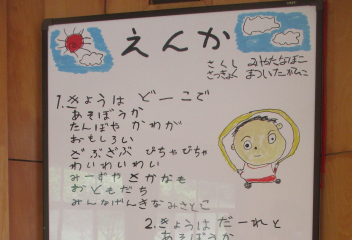 えんか
さくし みやたなぼこ
さっきょく まついたねこ
1.きょうは どーこで
あそぼうか
たんぼや かわが
おもしろい
ざぶざぶ ぴちゃぴちゃ
わいわいわい
みーずや さかなも
おともだち
みんなげんきな みさとこ
2.きょうは だーれと
あそぼうか